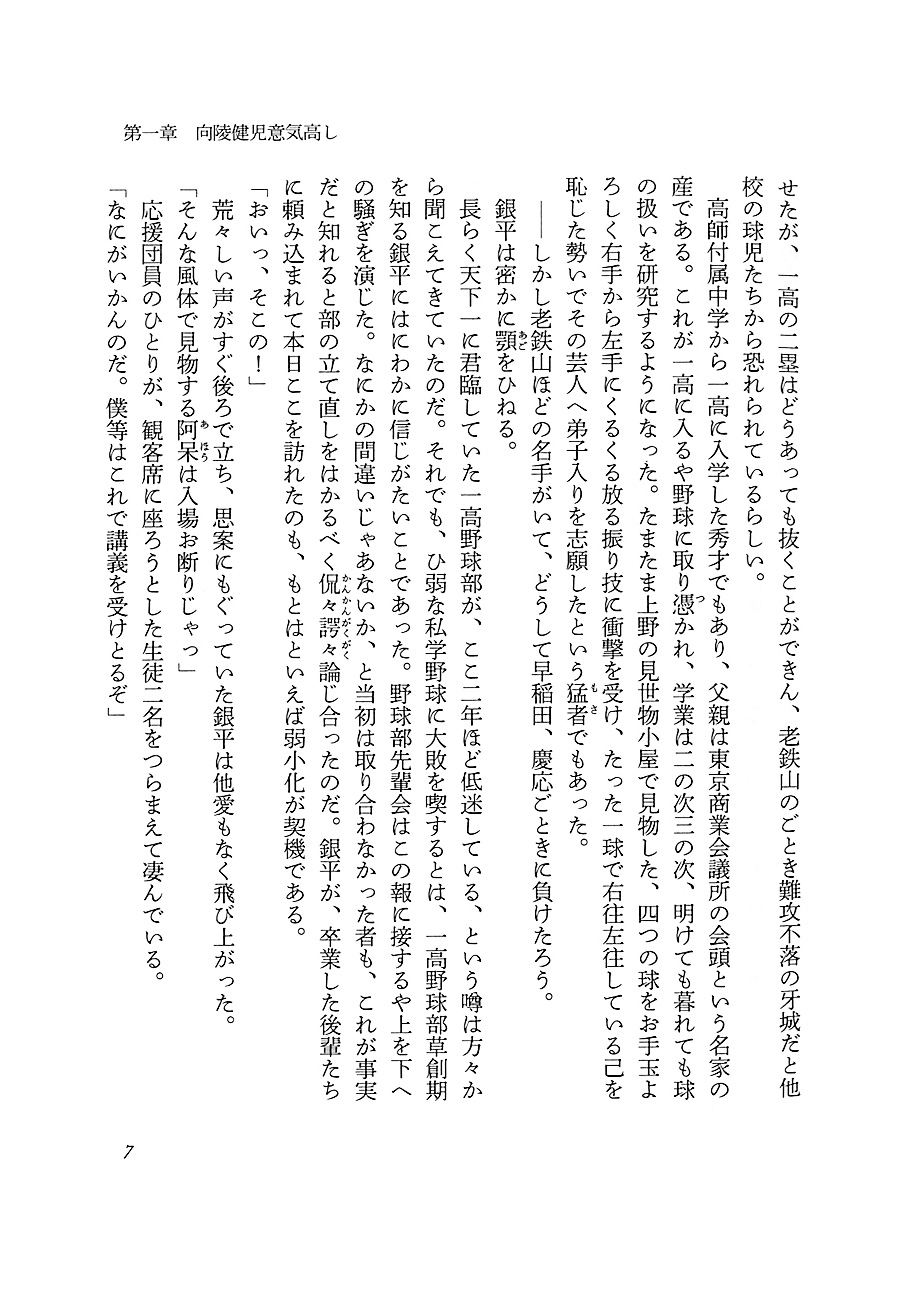 第一章　向陵健児意気高し
せたが、一高の二塁はどうあっても抜くことができん、老鉄山のごとき難攻不落の牙城だと他
校の球児たちから恐れられているらしい。
　高師付属中学から一高に入学した秀才でもあり、父親は東京商業会議所の会頭という名家の
産である。これが一高に入るや野球に取り憑かれ、学業は二の次三の次、明けても暮れても球
の扱いを研究するようになった。たまたま上野の見世物小屋で見物した、四つの球をお手玉よ
ろしく右手から左手にくるくる放る振り技に衝撃を受け、たった一球で右往左往している己を
恥じた勢いでその芸人へ弟子入りを志願したという猛者でもあった。
　――しかし老鉄山ほどの名手がいて、どうして早稲田、慶応ごときに負けたろう。
　銀平は密かに顎をひねる。
　長らく天下一に君臨していた一高野球部が、ここ二年ほど低迷している、という噂は方々か
ら聞こえてきていたのだ。それでも、ひ弱な私学野球に大敗を喫するとは、一高野球部草創期
を知る銀平にはにわかに信じがたいことであった。野球部先輩会はこの報に接するや上を下へ
の騒ぎを演じた。なにかの間違いじゃあないか、と当初は取り合わなかった者も、これが事実
だと知れると部の立て直しをはかるべく侃々諤々論じ合ったのだ。銀平が、卒業した後輩たち
に頼み込まれて本日ここを訪れたのも、もとはといえば弱小化が契機である。
「おいっ、そこの！」
　荒々しい声がすぐ後ろで立ち、思案にもぐっていた銀平は他愛もなく飛び上がった。
「そんな風体で見物する阿呆は入場お断りじゃっ」
　応援団員のひとりが、観客席に座ろうとした生徒二名をつらまえて凄んでいる。
「なにがいかんのだ。僕等はこれで講義を受けとるぞ」
7